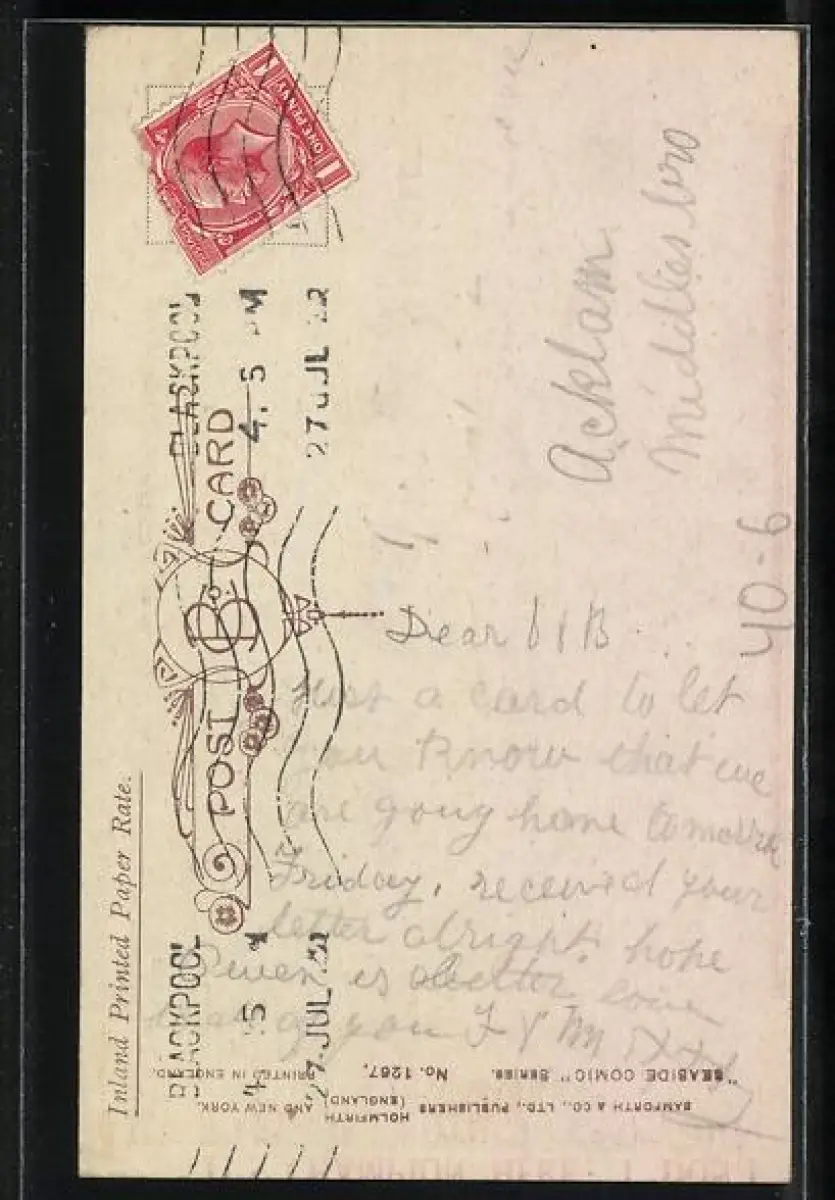 Inland Printed Paper Rate.
POST CARD
B
BLACKPOOL
4. 5 PM
27 JUL 22
BLACKPOOL
27 JUL
ONE PENNY
Acklam
Middlesbro
40-6
Dear
Just a card to let
you know that we
are going home tomorrow
Friday, received your
letter alright. hope
is better love
you F & M
"SEASIDE COMIC" SERIES. No. 1267. PRINTED IN ENGLAND.
BAMFORTH & CO., LTD., PUBLISHERS HOLMFIRTH (ENGLAND) AND NEW YORK.